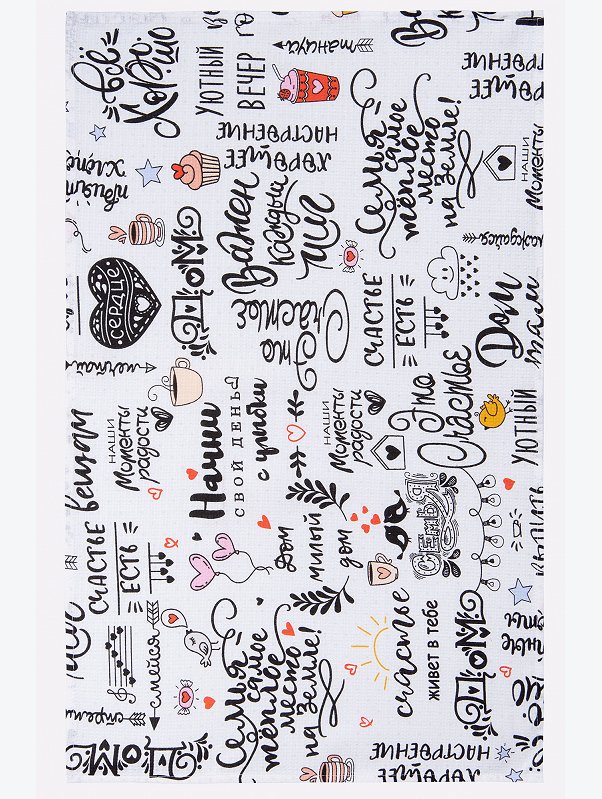 всё
Хорошо
УЮТНЫЙ
ВЕЧЕР
танцуй
НАСТРОЕНИЕ
ХОРОШЕЕ
НАСТРОЕНИЕ
ХОРОШЕЕ
Семья
самое
тёплое
место
на Земле!
НАШИ
Моменты
Важен
каждый
миг
ДОМ
СЕРДЦЕ
мечтай
Это
Счастье
СЧАСТЬЕ
ЕСТЬ
Дом
там
Это
Счастье
УЮТНЫЙ
НАШИ
Моменты
радости
Начни
СВОЙ ДЕНЬ
с улыбки
НАШИ
Моменты
радости
СЕМЬЯ
СЧАСТЬЕ
ЕСТЬ
Дом
милый
дом
смейся
Семья
самое
тёплое
место
на Земле!
счастье
живёт в тебе
ДОМ
ДОМ
НАСТРОЕНИЕ
ХОРОШЕЕ